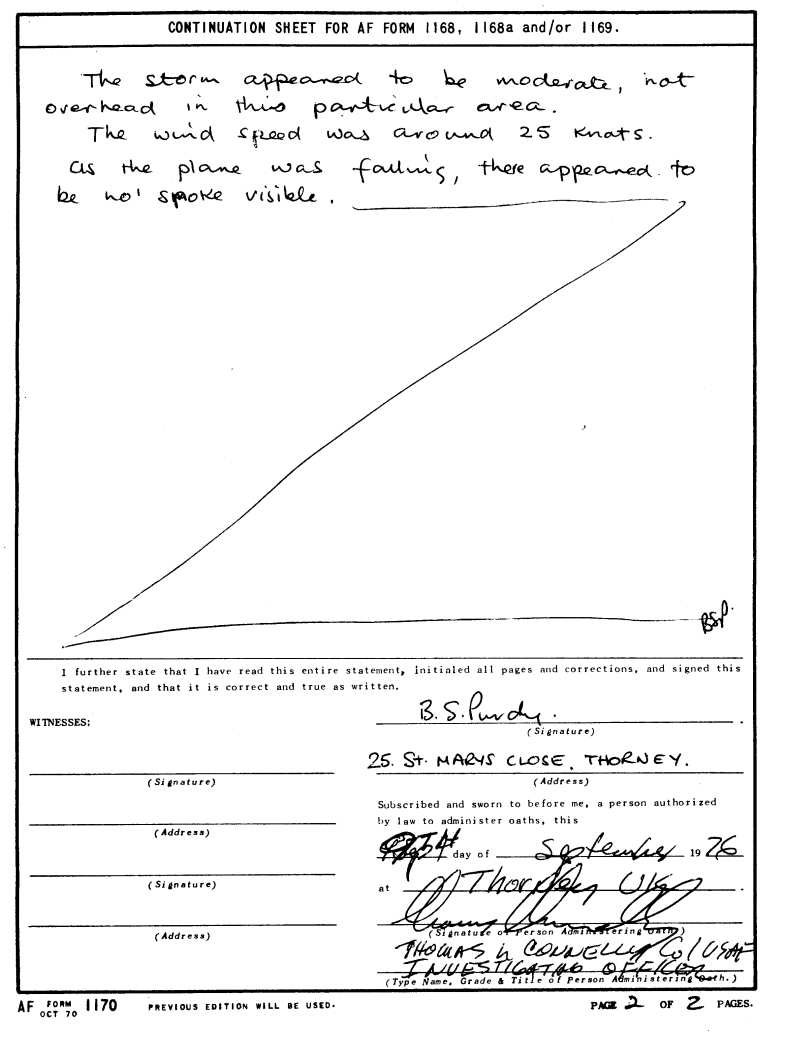 CONTINUATION SHEET FOR AF FORM 1168, 1168a and/or 1169.
The storm appeared to be moderate, not
overhead in this particular area.
The wind speed was around 25 Knots.
As the plane was falling, there appeared to
be no smoke visible.
BSP.
I further state that I have read this entire statement, initialed all pages and corrections, and signed this
statement, and that it is correct and true as written.
B. S. Purdy.
WITNESSES:
(Signature)
25. St. MARYS CLOSE, THORNEY.
(Signature)
(Address)
Subscribed and sworn to before me, a person authorized
by law to administer oaths, this
(Address)
day of September 1976
(Signature)
at Thorney UK
(Address)
(Signature of Person Administering Oath)
THOMAS CONNELLY Col USAF
INVESTIGATING OFFICER
(Type Name, Grade & Title of Person Administering Oath.)
AF FORM OCT 70 1170 PREVIOUS EDITION WILL BE USED. PAGE 2 OF 2 PAGES.